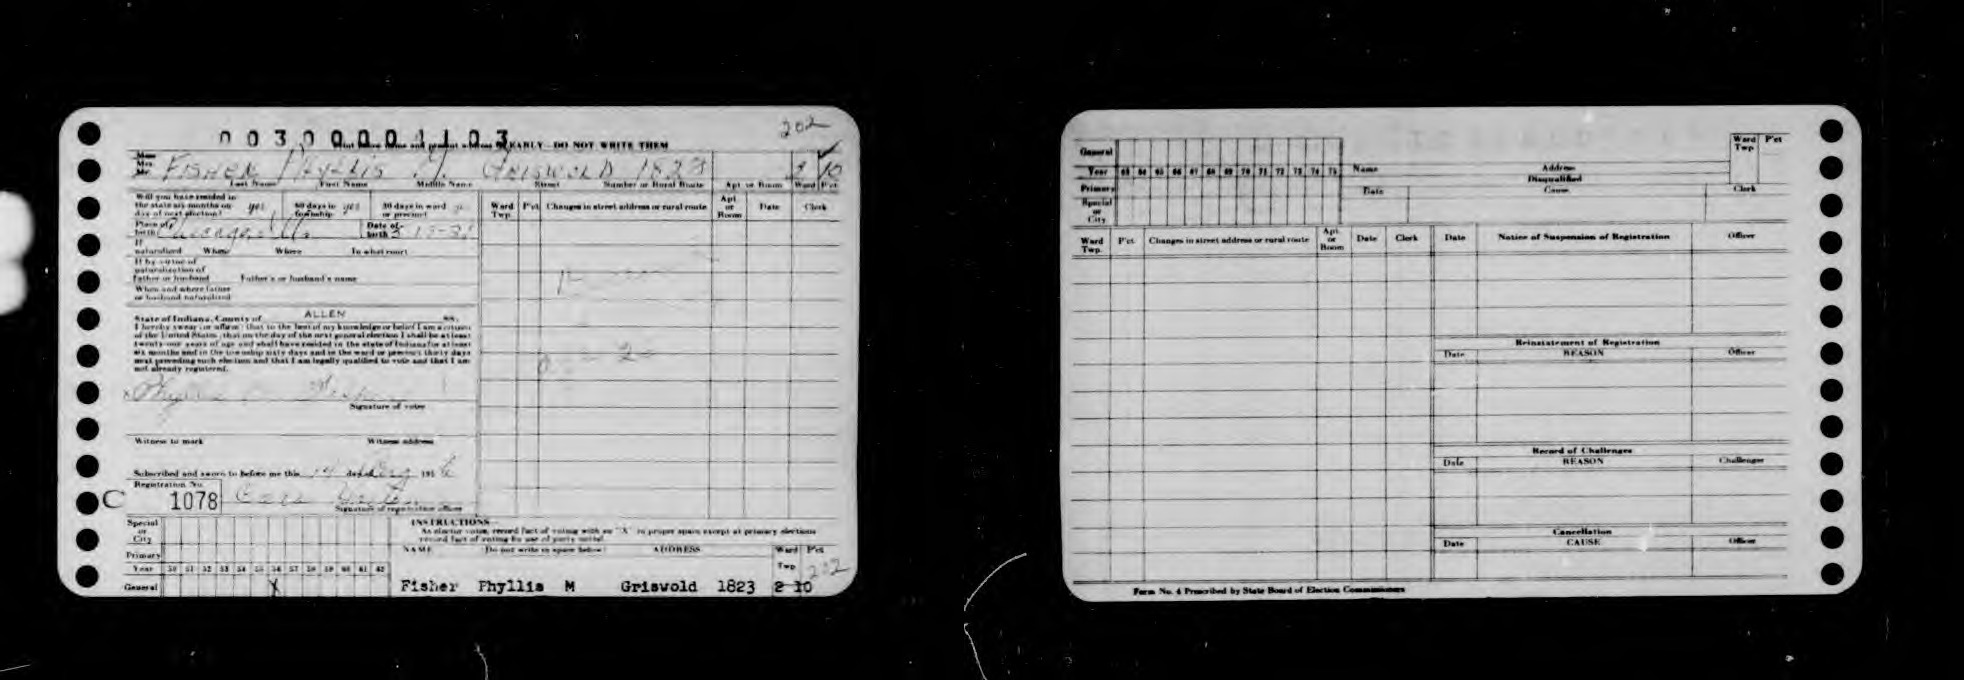 202
0030 0001103
EARLY—DO NOT WRITE THEM
Miss
Mrs.
Mr.
FISHER PHYLLIS M. GRISWOLD 1823 2 10
Last Name First Name Middle Name Street Number or Rural Route Apt or Room Ward P'ct
Will you have resided in the state six months on day of next election? yes 60 days in township yes 30 days in ward or precinct
Place of birth Chicago, Ill. Date of birth
If naturalized When Where In what court
If by virtue of naturalization of Father or husband Father's or husband's name
When and where father or husband naturalized
State of Indiana, County of ALLEN ss.
I hereby swear (or affirm) that to the best of my knowledge or belief I am a citizen
of the United States; that on the day of the next general election I shall be at least
twenty-one years of age and shall have resided in the state of Indiana for at least
six months and in the township sixty days and in the ward or precinct thirty days
next preceding such election and that I am legally qualified to vote and that I am
not already registered.
x Phyllis M. Fisher
Signature of voter
Witness to mark Witness address
Subscribed and sworn to before me this 14 day Aug 195 6
Registration No.
C 1078
Signature of registration officer
Ward Twp. P'ct. Changes in street address or rural route Apt. or Room Date Clerk
Special or City
Primary
Year 50 51 52 53 54 55 56 57 58 59 60 61 62
General X
INSTRUCTIONS—
As elector votes, record fact of voting with an "X" in proper space except at primary elections
record fact of voting by use of party initial.
NAME Do not write in space below! ADDRESS Ward Twp P'ct
202
Fisher Phyllis M Griswold 1823 2 10
General
Year 63 64 65 66 67 68 69 70 71 72 73 74 75
Primary
Special or City
Name Address Ward Twp P'ct
Disqualified
Date Cause Clerk
Ward Twp. P'ct. Changes in street address or rural route Apt. or Room Date Clerk
Date Notice of Suspension of Registration Officer
Reinstatement of Registration
Date REASON Officer
Record of Challenges
Date REASON Challenger
Cancellation
Date CAUSE Officer
Form No. 4 Prescribed by State Board of Election Commissioners